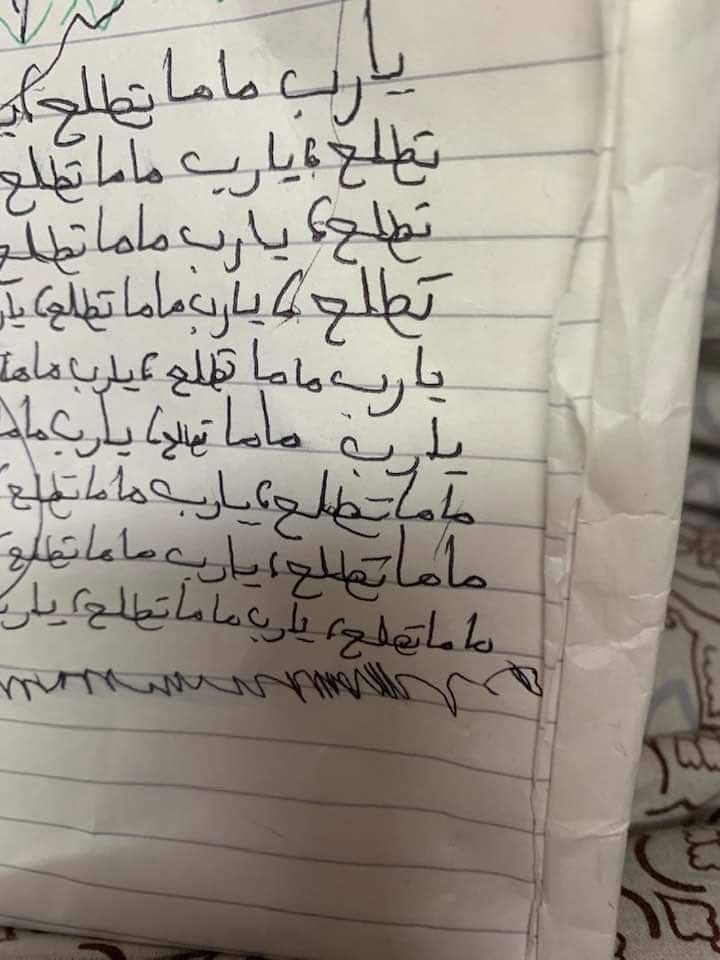 يارب ماما تطلع، يا
تطلع، يارب ماما تطلع
تطلع، يارب ماما تطلع
تطلع، يارب ماما تطلع، يار
يارب ماما تطلع، يارب ماما
يارب ماما تطلع، يارب ماما
ماما تطلع، يارب ماما تطلع،
ماما تطلع، يارب ماما تطلع،
ماما تطلع، يارب ماما تطلع، يارب